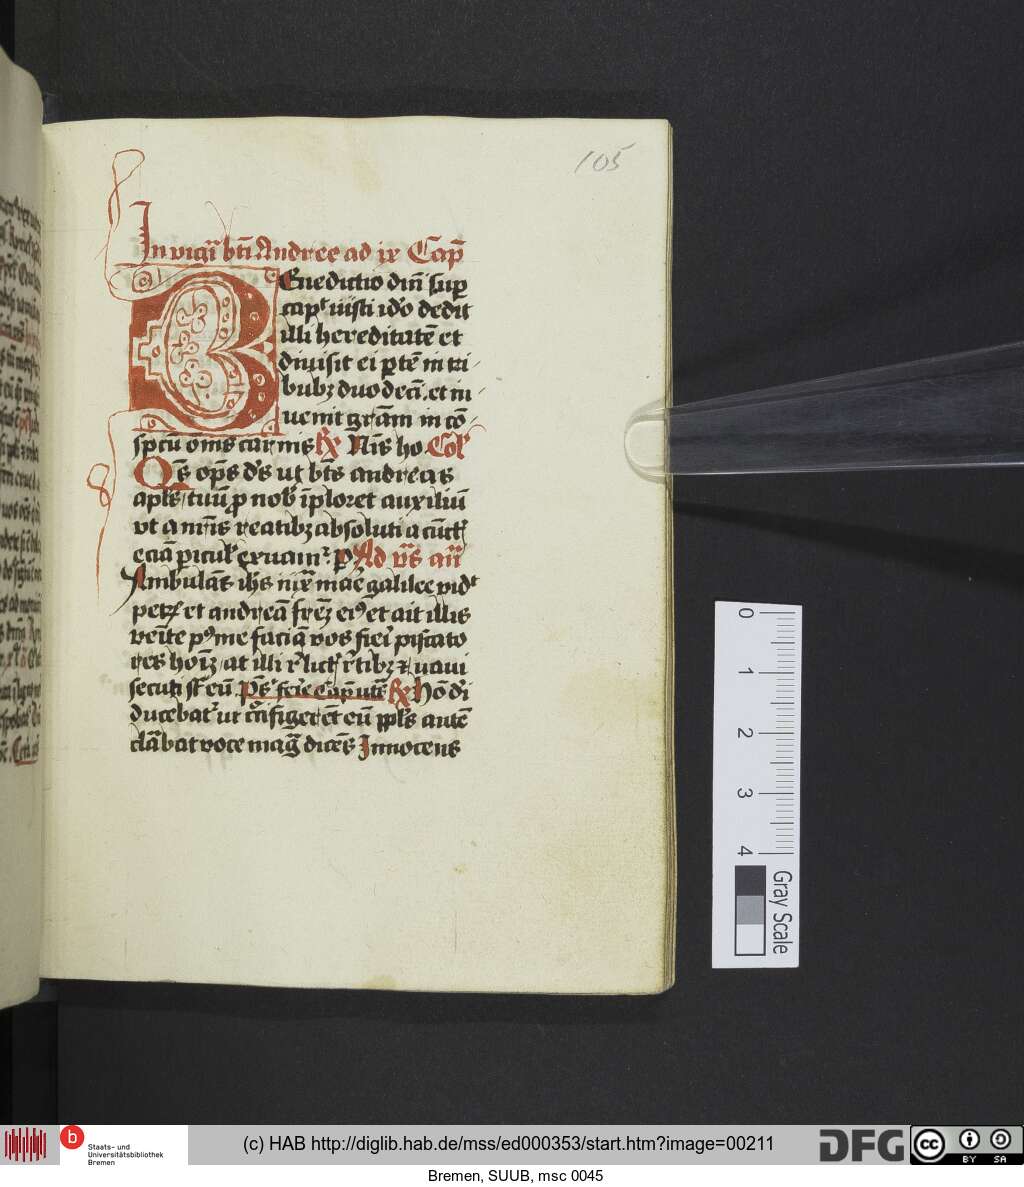 105
In vigil' bti Andree ad ix Cap̄
BEnedictio dn̄i sup̄
cap' iusti ido dedit
illi hereditatē et
diuisit ei p̄tē in tri
bubꝫ duodeci. et in
uenit grām in cō
spcū omīs carnis Rx Nīs ho Coll'
Qs om̄ps ds ut bt̄s andreas
apl̄s tuū pro nob' īploret auxiliū
vt a nr̄is reatibꝫ absoluti a cūct'
eciā picul' exuamr p Ad vr̄s an̄
Ambulās ihs iux mare galilee vid'
petꝝ et andreā frēꝫ ei' et ait illis
venīte p' me faciā vos fieri piscato
res hoīꝫ at illi r'lict' r'tibꝫ et naui
secuti st eū. Ps ferie Cap ut Rx Hō di
ducebat' ut c'figerēt eū ppl's autē
clābat voce magā dicēs Innocens
0 1 2 3 4
Gray Scale
b Staats- und
Universitätsbibliothek
Bremen
(c) HAB http://diglib.hab.de/mss/ed000353/start.htm?image=00211
DFG
cc BY SA
Bremen, SUUB, msc 0045